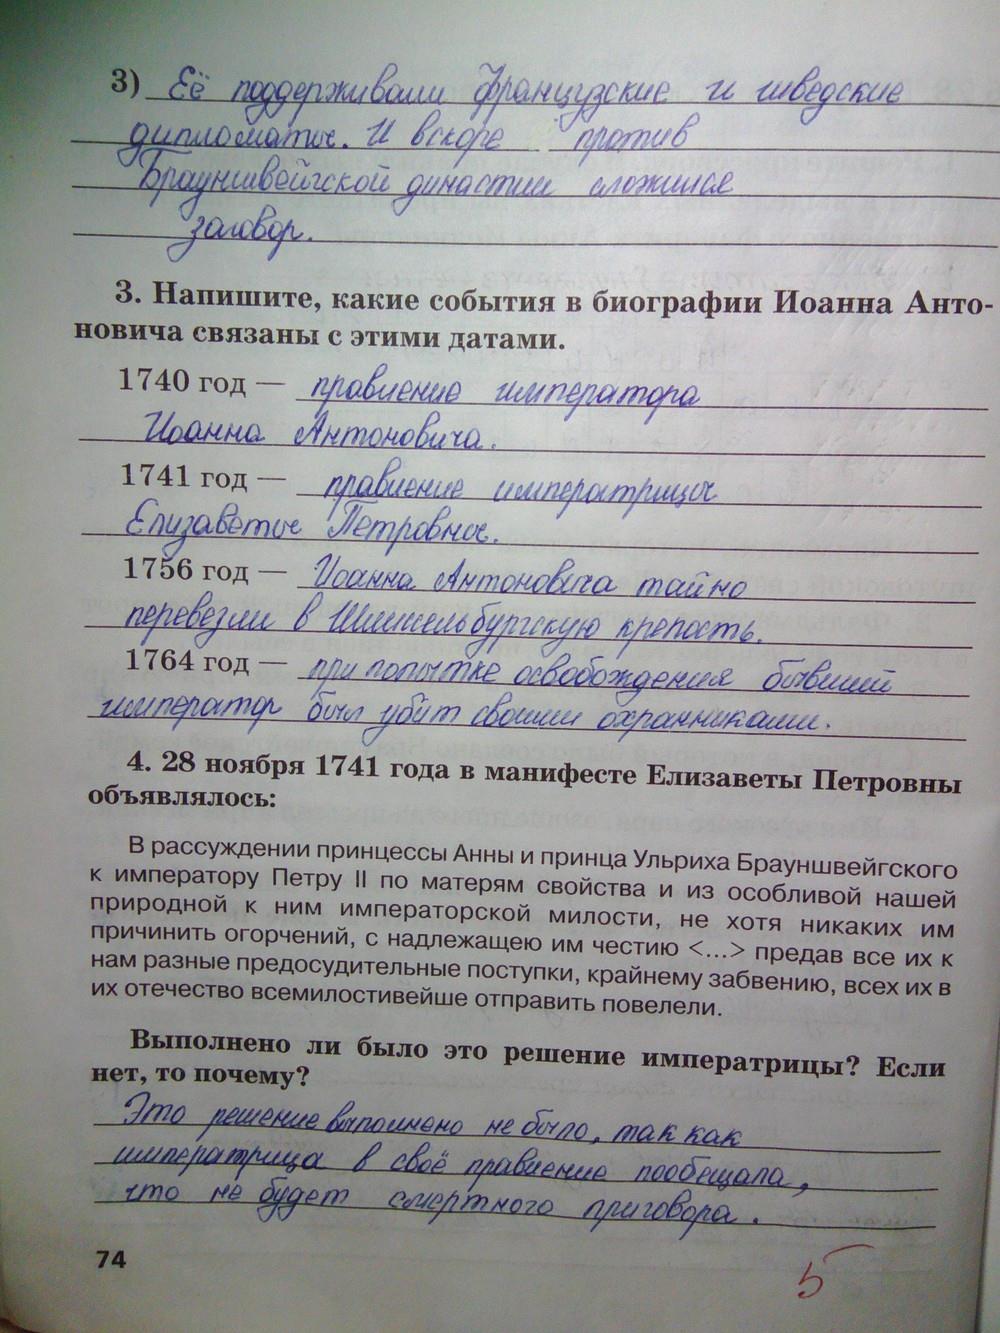 3) Её поддерживали французские и шведские
дипломаты. И вскоре против
Брауншвейгской династии сложился
заговор.
3. Напишите, какие события в биографии Иоанна Анто-
новича связаны с этими датами.
1740 год — правление императора
Иоанна Антоновича.
1741 год — правление императрицы
Елизаветы Петровны.
1756 год — Иоанна Антоновича тайно
перевезли в Шлиссельбургскую крепость.
1764 год — при попытке освобождения бывший
император был убит своими охранниками.
4. 28 ноября 1741 года в манифесте Елизаветы Петровны
объявлялось:
В рассуждении принцессы Анны и принца Ульриха Брауншвейгского
к императору Петру II по матерям свойства и из особливой нашей
природной к ним императорской милости, не хотя никаких им
причинить огорчений, с надлежащею им честию <...> предав все их к
нам разные предосудительные поступки, крайнему забвению, всех их в
их отечество всемилостивейше отправить повелели.
Выполнено ли было это решение императрицы? Если
нет, то почему?
Это решение выполнено не было, так как
императрица в своё правление пообещала,
что не будет смертного приговора.
74
5